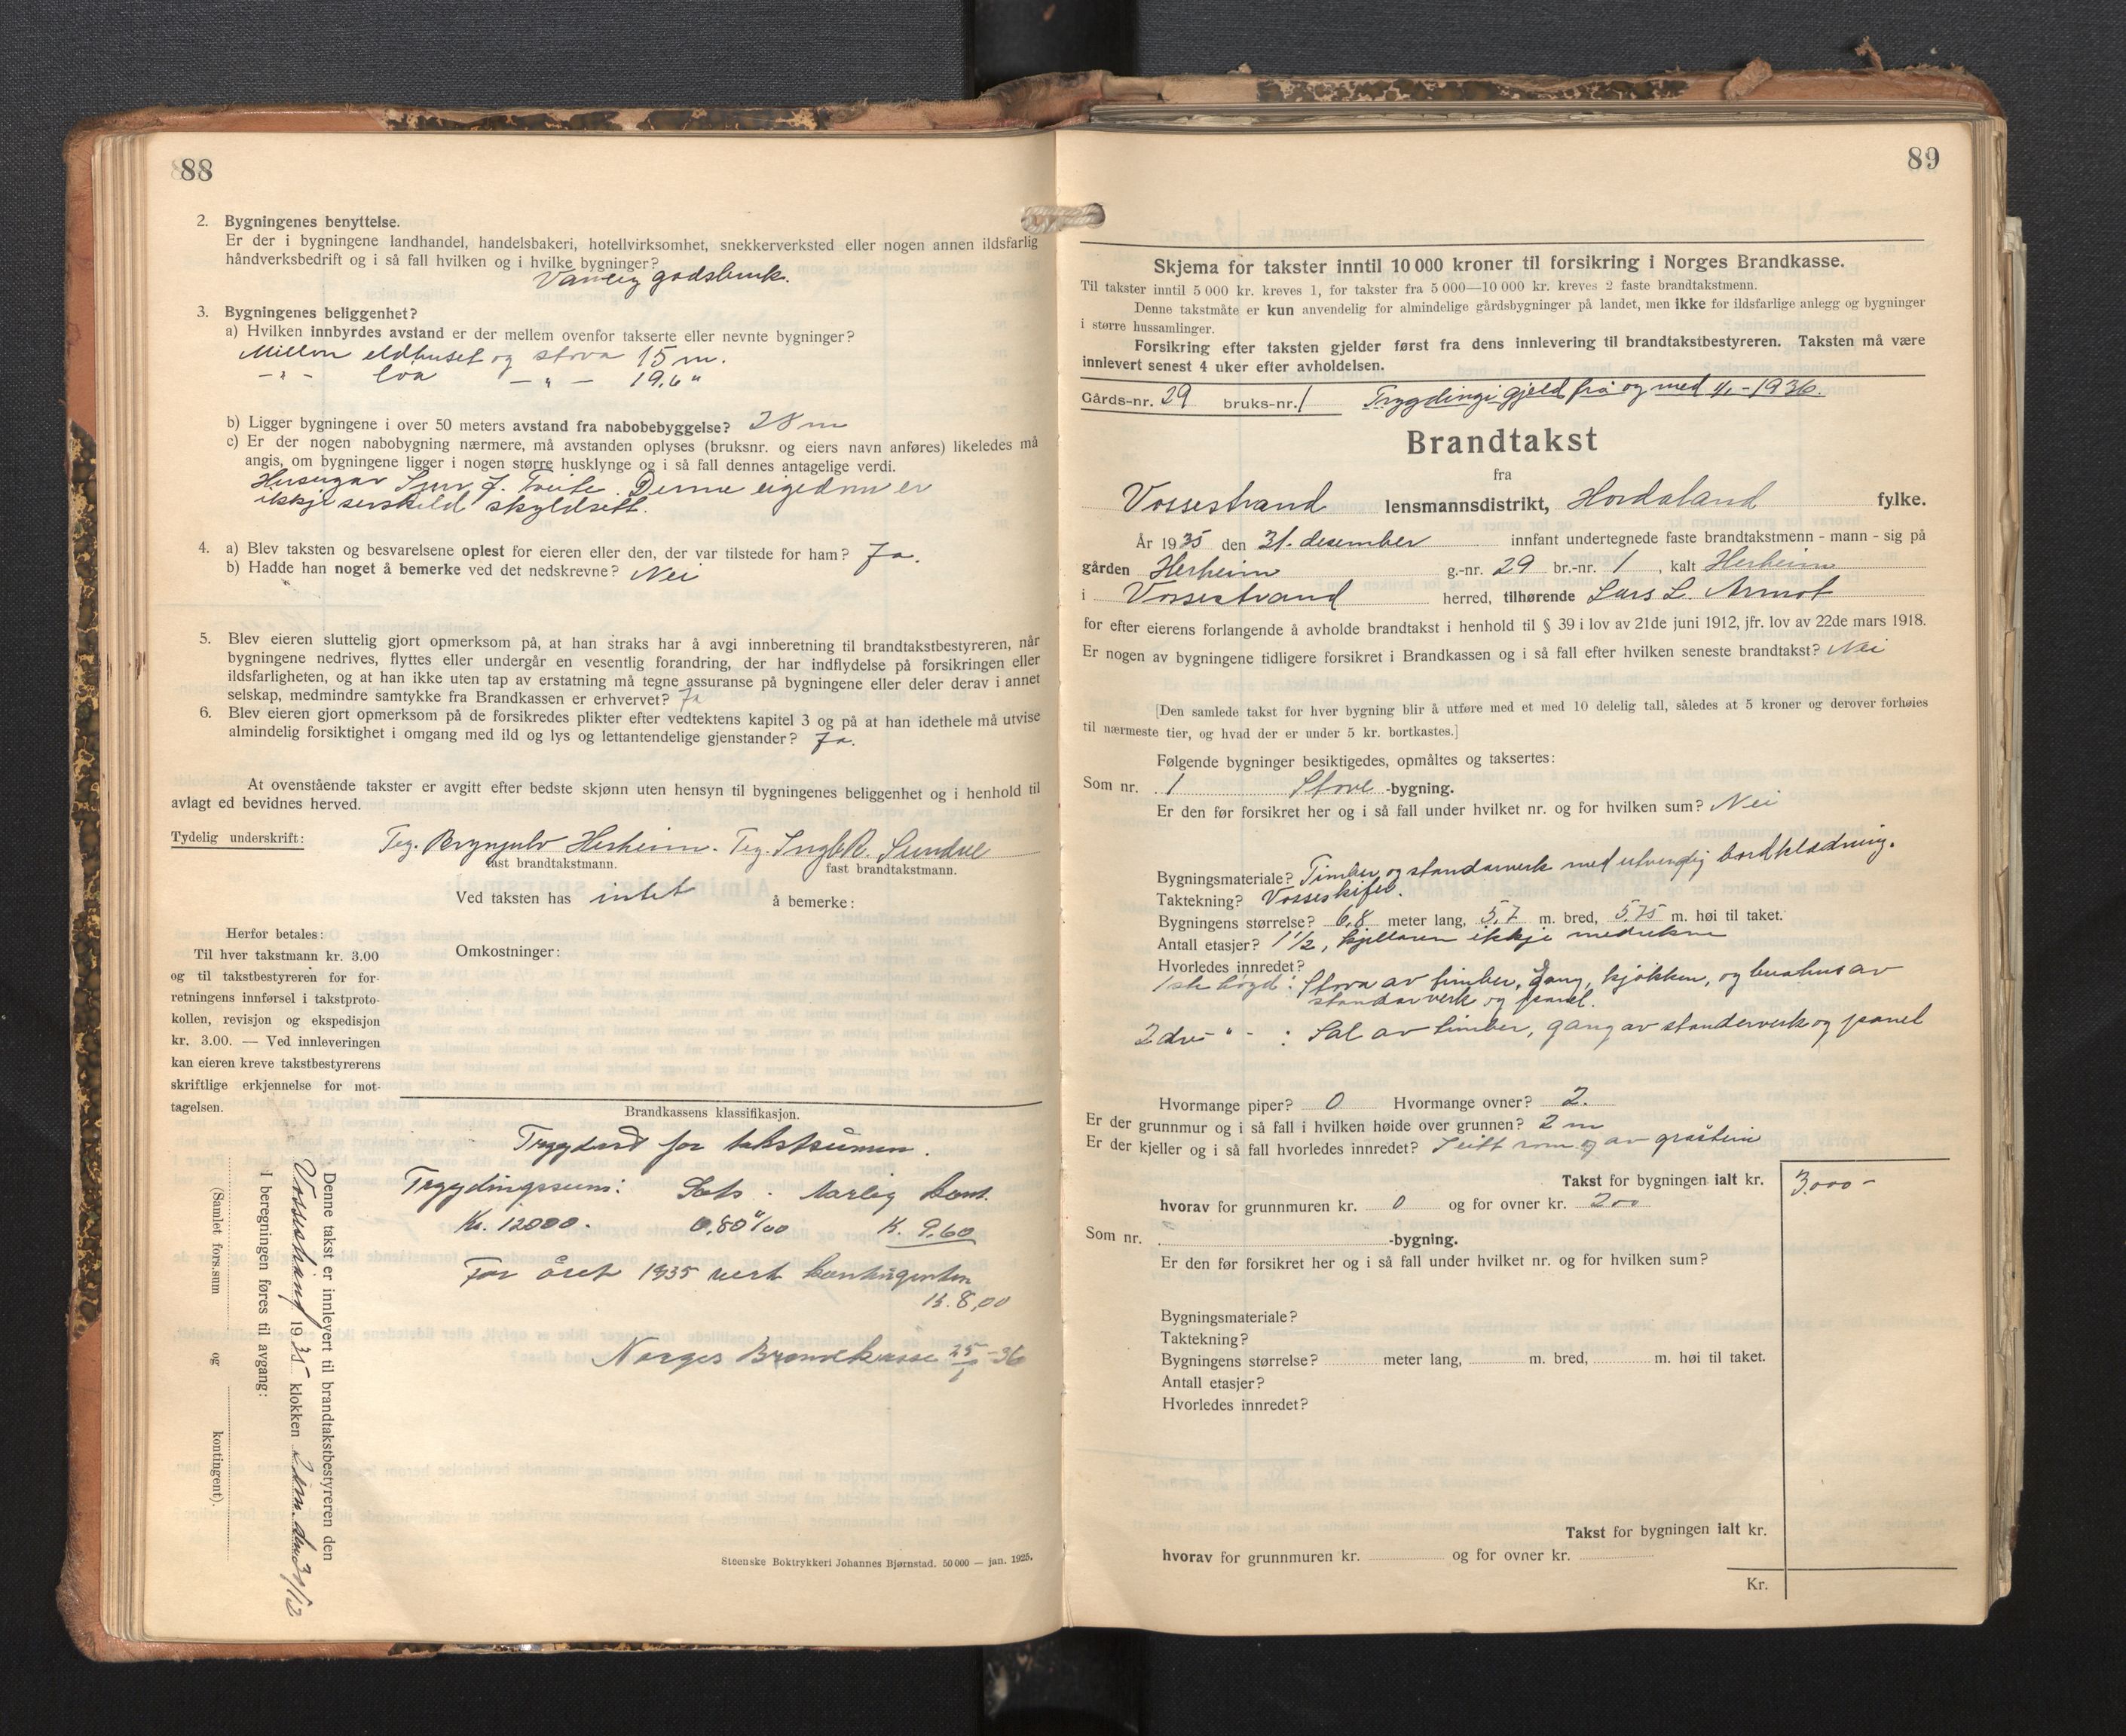 88
2. Bygningenes benyttelse.
Er der i bygningene landhandel, handelsbakeri, hotellvirksomhet, snekkerverksted eller nogen annen ildsfarlig
håndverksbedrift og i så fall hvilken og i hvilke bygninger?
Vanleg gardsbruk.
3. Bygningenes beliggenhet?
a) Hvilken innbyrdes avstand er der mellem ovenfor takserte eller nevnte bygninger?
Millom eldhuset og stova 15 m.
–"– loa –"– 19,6 "
b) Ligger bygningene i over 50 meters avstand fra nabobebyggelse? 28 m
c) Er der nogen nabobygning nærmere, må avstanden oplyses (bruksnr. og eiers navn anføres) likeledes må
angis, om bygningene ligger i nogen større husklynge og i så fall dennes antagelige verdi.
Sjur J. Denne eigedom er
ikkje serskild skyldsett.
4. a) Blev taksten og besvarelsene oplest for eieren eller den, der var tilstede for ham? Ja.
b) Hadde han noget å bemerke ved det nedskrevne? Nei
5. Blev eieren sluttelig gjort opmerksom på, at han straks har å avgi innberetning til brandtakstbestyreren, når
bygningene nedrives, flyttes eller undergår en vesentlig forandring, der har indflydelse på forsikringen eller
ildsfarligheten, og at han ikke uten tap av erstatning må tegne assuranse på bygningene eller deler derav i annet
selskap, medmindre samtykke fra Brandkassen er erhvervet? Ja
6. Blev eieren gjort opmerksom på de forsikredes plikter efter vedtektens kapitel 3 og på at han idethele må utvise
almindelig forsiktighet i omgang med ild og lys og lettantendelige gjenstander? Ja.
At ovenstående takster er avgitt efter bedste skjønn uten hensyn til bygningenes beliggenhet og i henhold til
avlagt ed bevidnes herved.
Tydelig underskrift: Teg. Brynjulv Herheim. Teg. Ingb. R. Sundve
fast brandtakstmann. fast brandtakstmann.
Ved taksten has intet å bemerke:
Herfor betales:
Til hver takstmann kr. 3.00
og til takstbestyreren for for-
retningens innførsel i takstproto-
kollen, revisjon og ekspedisjon
kr. 3.00. — Ved innleveringen
kan eieren kreve takstbestyrerens
skriftlige erkjennelse for mot-
tagelsen.
Omkostninger:
Brandkassens klassifikasjon.
Trygdast for takstsumen.
Trygdingssum: Sats. Aarleg kont.
Kr. 12000. 0,80 ‰ K. 9,60
For året 1935 vert kontingenten
K. 8,00
Norges Brandkasse 25/1 -36
Denne takst er innlevert til brandtakstbestyreren den
Vossestrand 1935 klokken 2 em. den 31/12
I beregningen føres til avgang:
(Samlet fors.sum og kontingent).
Steenske Boktrykkeri Johannes Bjørnstad. 50 000 — jan. 1925.
89
Skjema for takster inntil 10 000 kroner til forsikring i Norges Brandkasse.
Til takster inntil 5 000 kr. kreves 1, for takster fra 5 000—10 000 kr. kreves 2 faste brandtakstmenn.
Denne takstmåte er kun anvendelig for almindelige gårdsbygninger på landet, men ikke for ildsfarlige anlegg og bygninger
i større hussamlinger.
Forsikring efter taksten gjelder først fra dens innlevering til brandtakstbestyreren. Taksten må være
innlevert senest 4 uker efter avholdelsen.
Gårds-nr. 29 bruks-nr. 1 Trygdingi gjeld frå og med 1/1 - 1936.
Brandtakst
fra
Vossestrand lensmannsdistrikt, Hordaland fylke.
År 1935 den 31. desember innfant undertegnede faste brandtakstmenn - mann - sig på
gården Herheim g.-nr. 29 br.-nr. 1, kalt Herheim
i Vossestrand herred, tilhørende Lars L. Armot
for efter eierens forlangende å avholde brandtakst i henhold til § 39 i lov av 21de juni 1912, jfr. lov av 22de mars 1918.
Er nogen av bygningene tidligere forsikret i Brandkassen og i så fall efter hvilken seneste brandtakst? Nei
[Den samlede takst for hver bygning blir å utføre med et med 10 delelig tall, således at 5 kroner og derover forhøies
til nærmeste tier, og hvad der er under 5 kr. bortkastes.]
Følgende bygninger besiktigedes, opmåltes og taksertes:
Som nr. 1 Stove -bygning.
Er den før forsikret her og i så fall under hvilket nr. og for hvilken sum? Nei
Bygningsmateriale? Timber og standarverk med utvendig bordklædning.
Taktekning? Vosseskifer.
Bygningens størrelse? 6,8 meter lang, 5,7 m. bred, 5,75 m. høi til taket.
Antall etasjer? 1 1/2, kjellaren ikkje medrekna
Hvorledes innredet?
1ste høgd: Stova av timber, gang, kjøkken, og buahus av
standarverk og panel.
2dre " - : Sal av timber, gang av standerverk og panel
Hvormange piper? 0 Hvormange ovner? 2.
Er der grunnmur og i så fall i hvilken høide over grunnen? 2 m
Er der kjeller og i så fall hvorledes innredet? I eitt rom og av gråstein
Takst for bygningen ialt kr. 3.000 -
hvorav for grunnmuren kr. 0 og for ovner kr. 200
Som nr. -bygning.
Er den før forsikret her og i så fall under hvilket nr. og for hvilken sum?
Bygningsmateriale?
Taktekning?
Bygningens størrelse? meter lang, m. bred, m. høi til taket.
Antall etasjer?
Hvorledes innredet?
Takst for bygningen ialt kr.
hvorav for grunnmuren kr. og for ovner kr.
Kr.